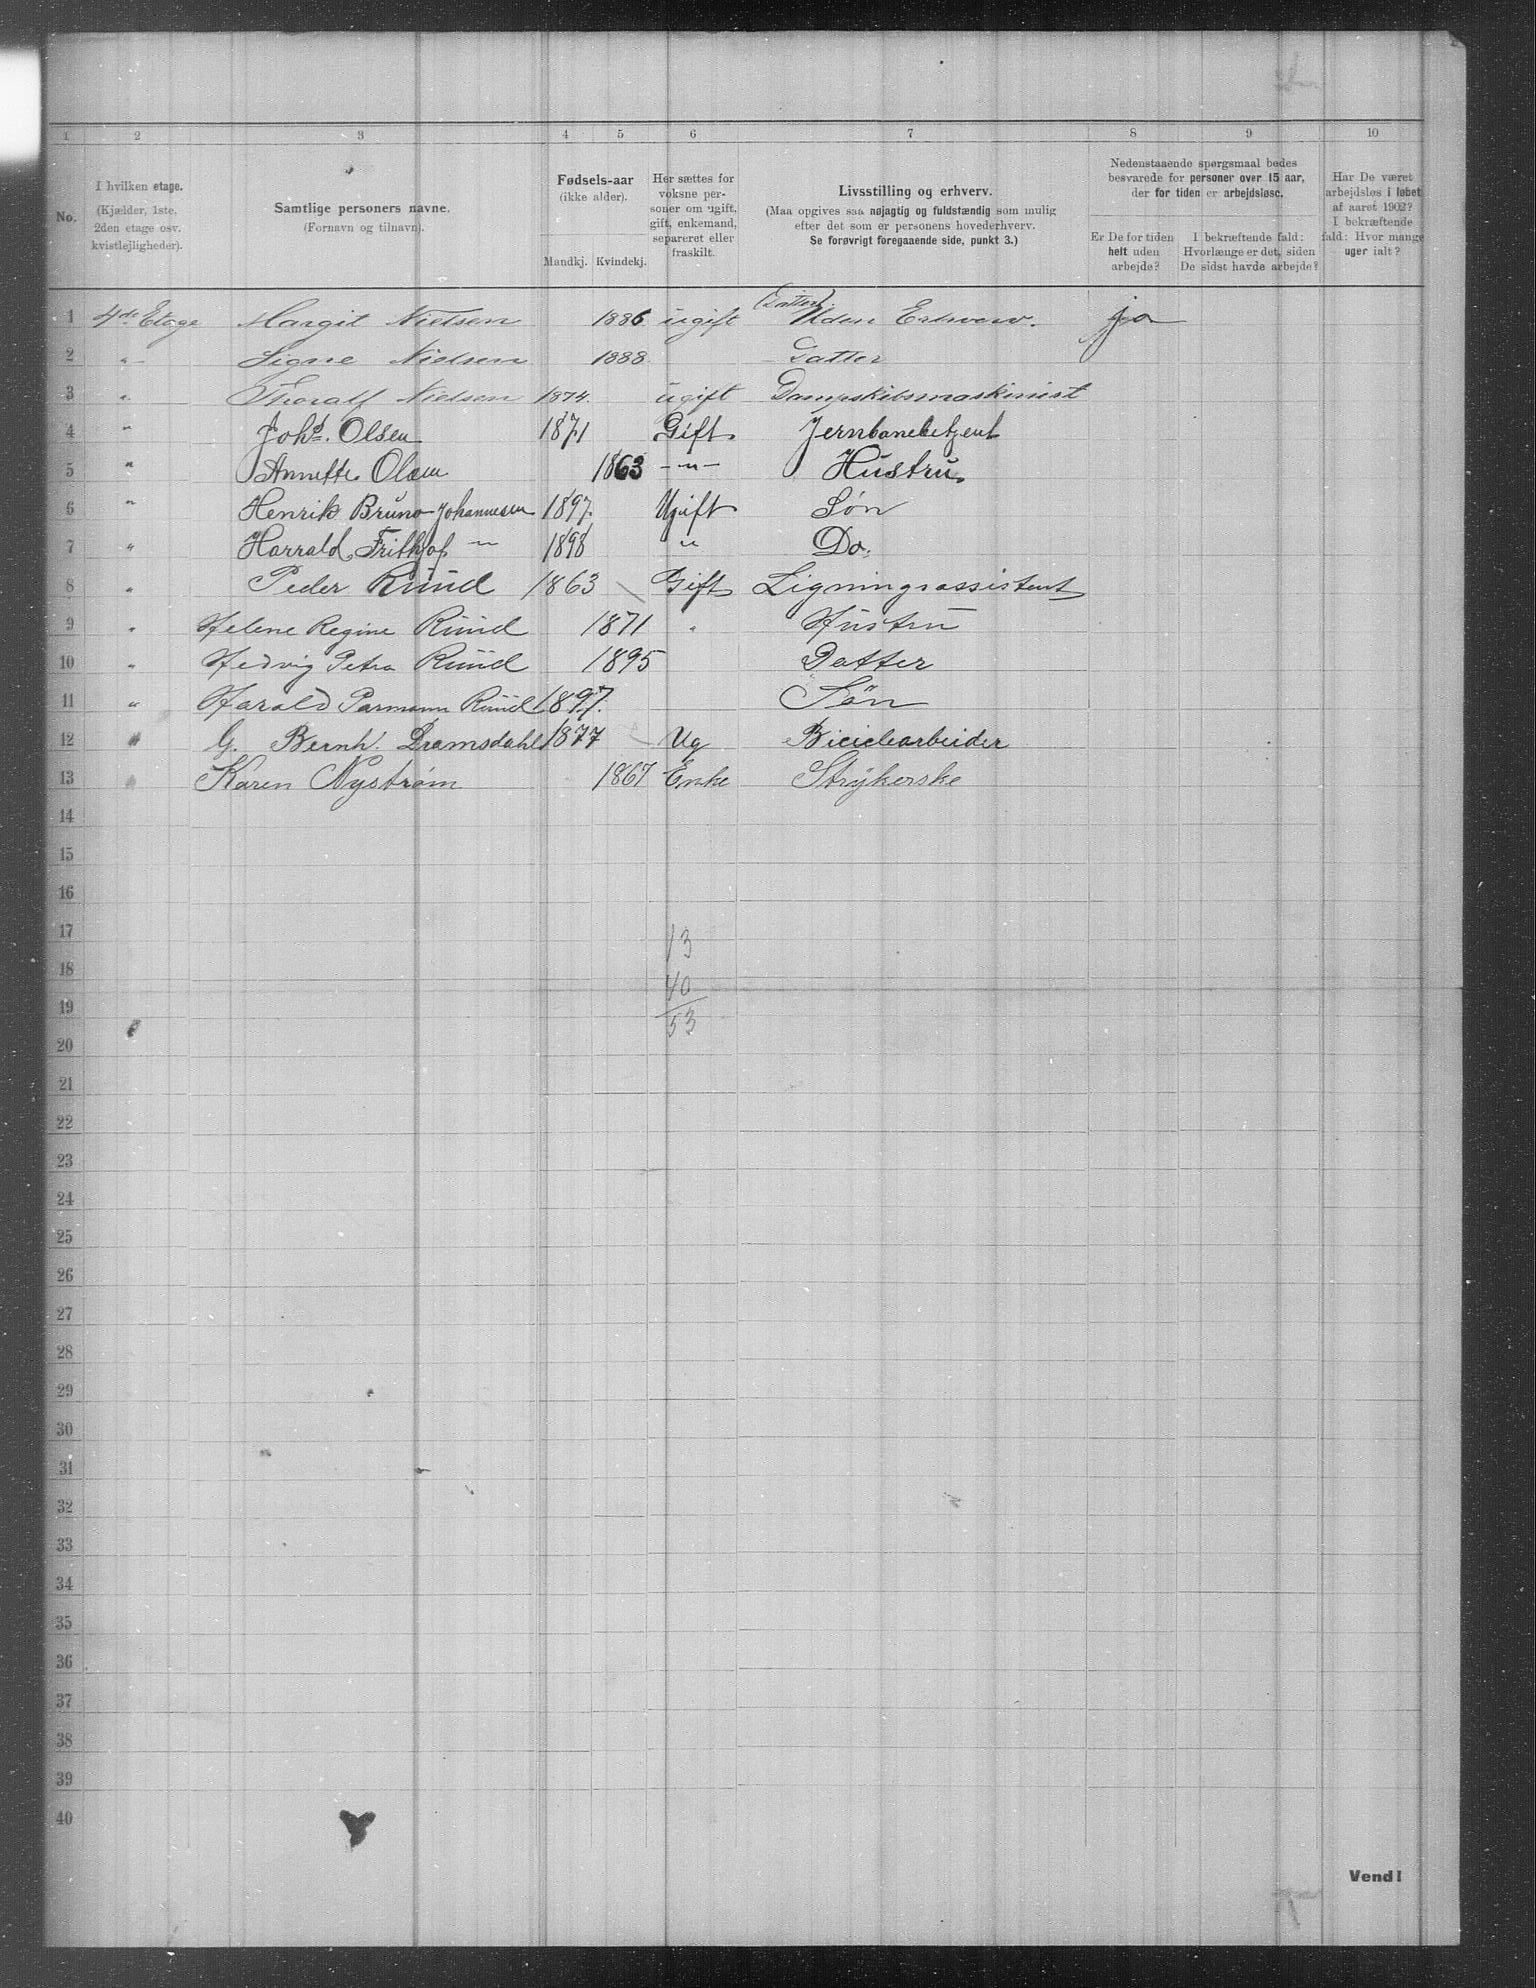 1 2 3 4 5 6 7 8 9 10
No.
I hvilken etage.
(Kjælder, 1ste,
2den etage osv.
kvistlejligheder).
Samtlige personers navne.
(Fornavn og tilnavn).
Fødsels-aar
(ikke alder).
Mandkj. Kvindekj.
Her sættes for
voksne per-
soner om ugift,
gift, enkemand,
separeret eller
fraskilt.
Livsstilling og erhverv.
(Maa opgives saa nøjagtig og fuldstændig som mulig
efter det som er personens hovederhverv.
Se forøvrigt foregaaende side, punkt 3.)
Nedenstaaende spørgsmaal bedes
besvarede for personer over 15 aar,
der for tiden er arbejdsløse.
Er De for tiden
helt uden
arbejde?
I bekræftende fald:
Hvorlænge er det, siden
De sidst havde arbejde?
Har De været
arbejdsløs i løbet
af aaret 1902?
I bekræftende
fald: Hvor mange
uger ialt?
(Datter)
1 4de Etage Margit Nielsen 1886 ugift Uden Erhverv. ja
2 " Signe Nielsen 1888 Datter
3 " Thoralf Nielsen 1874. ugift Dampskibsmaskinist
4 " Johs. Olsen 1871 Gift Jernbanebetjent
5 " Annette Olsen 1863 —"— Hustru.
6 " Henrik Bruno Johannesen 1897 Ugift Søn
7 " Harrald Frithjof —"— 1898 " Do.
8 " Peder Ruud 1863 Gift Ligningsassistent
9 " Helene Regine Ruud 1871 " Hustru
10 " Hedvig Petra Ruud 1895 Datter
11 " Harald Parmann Ruud 1897. Søn
12 " G. Bernh. Dramsdahl 1877 Ug Biciclearbeider
13 " Karen Nystrøm 1867 Enke Strykerske
14
15
16
17 13
18 40
19 53
20
21
22
23
24
25
26
27
28
29
30
31
32
33
34
35
36
37
38
39
40
Vend!